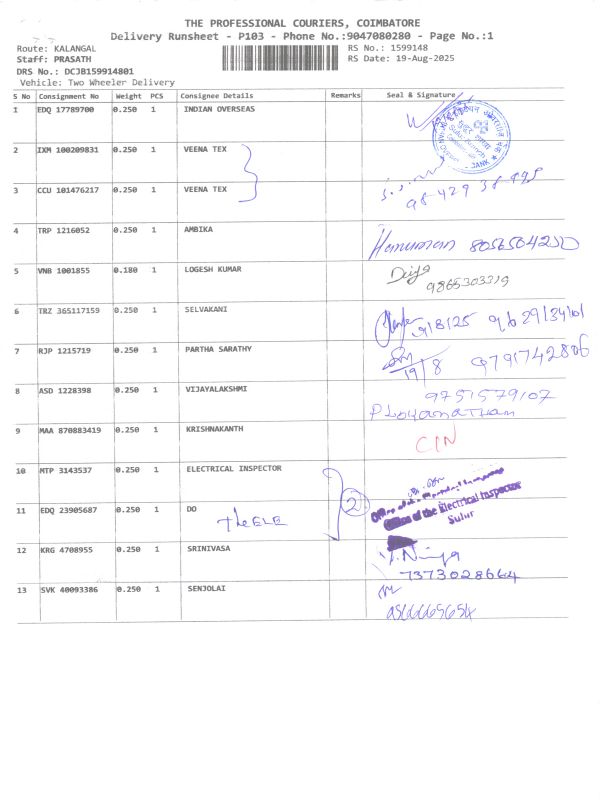 THE PROFESSIONAL COURIERS, COIMBATORE
Delivery Runsheet - P103 - Phone No.:9047080280 - Page No.:1
Route: KALANGAL
RS No.: 1599148
Staff: PRASATH
RS Date: 19-Aug-2025
DRS No.: DCJB159914801
Vehicle: Two Wheeler Delivery
S No Consignment No Weight PCS Consignee Details Remarks Seal & Signature
1 EDQ 17789700 0.250 1 INDIAN OVERSEAS
2 IXM 100209831 0.250 1 VEENA TEX
3 CCU 101476217 0.250 1 VEENA TEX
4 TRP 1216052 0.250 1 AMBIKA Hanuman
5 VNB 1001855 0.180 1 LOGESH KUMAR
9865303319
6 TRZ 365117159 0.250 1 SELVAKANI
7 RJP 1215719 0.250 1 PARTHA SARATHY 19/8 9791742806
8 ASD 1228398 0.250 1 VIJAYALAKSHMI 9751579107
P Loganatham
9 MAA 870883419 0.250 1 KRISHNAKANTH CIN
10 MTP 3143537 0.250 1 ELECTRICAL INSPECTOR
2
11 EDQ 23905687 0.250 1 DO Office of the Electrical Inspector
The ELE Sulur
12 KRG 4708955 0.250 1 SRINIVASA
7373028664
13 SVK 40093386 0.250 1 SENJOLAI